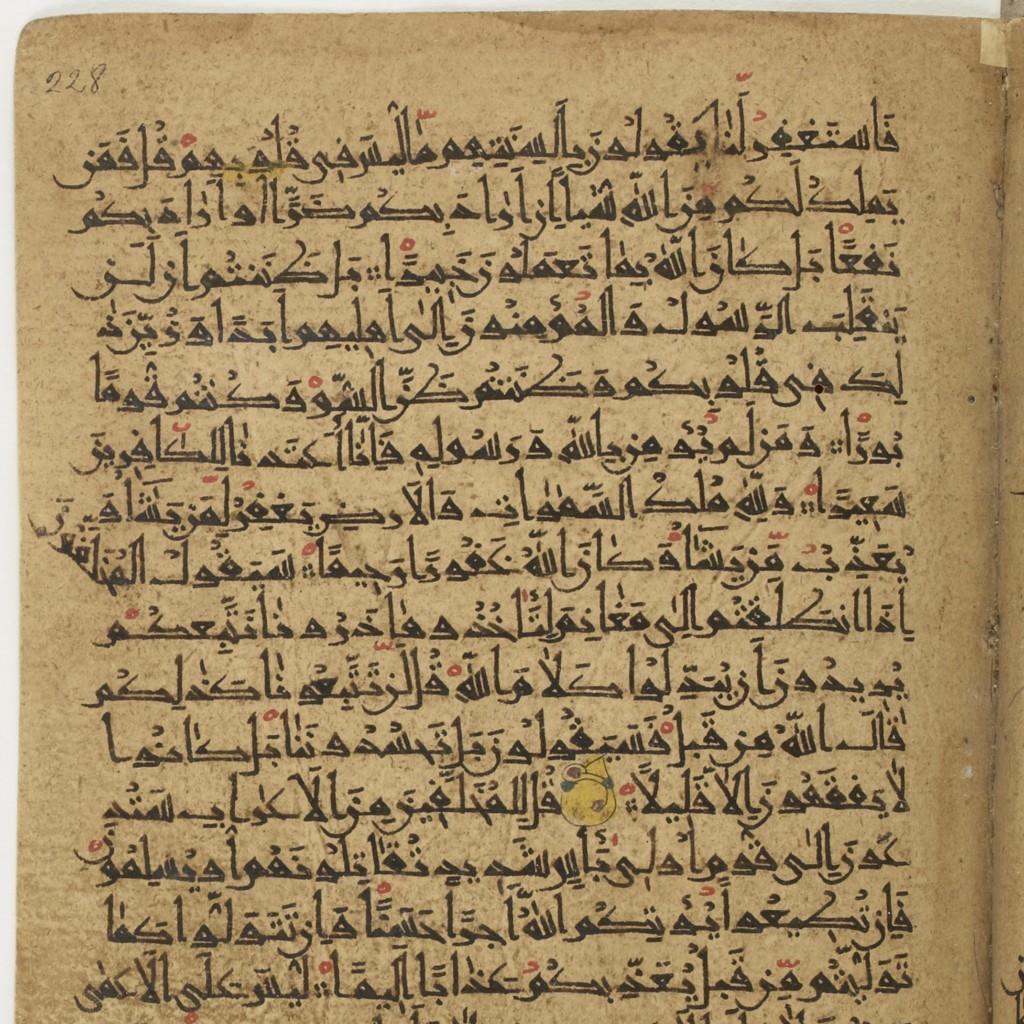 228
فَاسْتَغْفِرْ لَنَا يَقُولُونَ بِأَلْسِنَتِهِم مَّا لَيْسَ فِي قُلُوبِهِمْ قُلْ فَمَن
يَمْلِكُ لَكُم مِّنَ اللَّهِ شَيْئًا إِنْ أَرَادَ بِكُمْ ضَرًّا أَوْ أَرَادَ بِكُمْ
نَفْعًا بَلْ كَانَ اللَّهُ بِمَا تَعْمَلُونَ خَبِيرًا ؞ بَلْ ظَنَنتُمْ أَن لَّن
يَنقَلِبَ الرَّسُولُ وَالْمُؤْمِنُونَ إِلَىٰ أَهْلِيهِمْ أَبَدًا وَزُيِّنَ ذَٰ
لِكَ فِي قُلُوبِكُمْ وَظَنَنتُمْ ظَنَّ السَّوْءِ وَكُنتُمْ قَوْمًا
بُورًا ؞ وَمَن لَّمْ يُؤْمِن بِاللَّهِ وَرَسُولِهِ فَإِنَّا أَعْتَدْنَا لِلْكَافِرِينَ
سَعِيرًا ؞ وَلِلَّهِ مُلْكُ السَّمَٰوَاتِ وَالْأَرْضِ يَغْفِرُ لِمَن يَشَاءُ وَ
يُعَذِّبُ مَن يَشَاءُ وَكَانَ اللَّهُ غَفُورًا رَّحِيمًا ؞ سَيَقُولُ الْمُخَلَّفُونَ
إِذَا انطَلَقْتُمْ إِلَىٰ مَغَانِمَ لِتَأْخُذُوهَا ذَرُونَا نَتَّبِعْكُمْ
يُرِيدُونَ أَن يُبَدِّلُوا كَلَامَ اللَّهِ قُل لَّن تَتَّبِعُونَا كَذَٰلِكُمْ
قَالَ اللَّهُ مِن قَبْلُ فَسَيَقُولُونَ بَلْ تَحْسُدُونَنَا بَلْ كَانُوا
لَا يَفْقَهُونَ إِلَّا قَلِيلًا ؞ قُل لِّلْمُخَلَّفِينَ مِنَ الْأَعْرَابِ سَتُدْ
عَوْنَ إِلَىٰ قَوْمٍ أُولِي بَأْسٍ شَدِيدٍ تُقَاتِلُونَهُمْ أَوْ يُسْلِمُونَ
فَإِن تُطِيعُوا يُؤْتِكُمُ اللَّهُ أَجْرًا حَسَنًا وَإِن تَتَوَلَّوْا كَمَا
تَوَلَّيْتُم مِّن قَبْلُ يُعَذِّبْكُمْ عَذَابًا أَلِيمًا ؞ لَيْسَ عَلَى الْأَعْمَىٰ